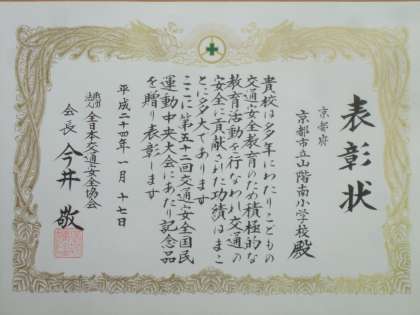 表彰状
京都府
京都市立山階南小学校殿
貴校は多年にわたりこどもの
交通安全教育のため積極的な
教育活動を行なわれ交通の
安全に貢献された功績はまこ
とに多大であります
ここに第五十二回交通安全国民
運動中央大会にあたり記念品
を贈り表彰します
平成二十四年一月十七日
財団法人 全日本交通安全協会
会長 今井 敬